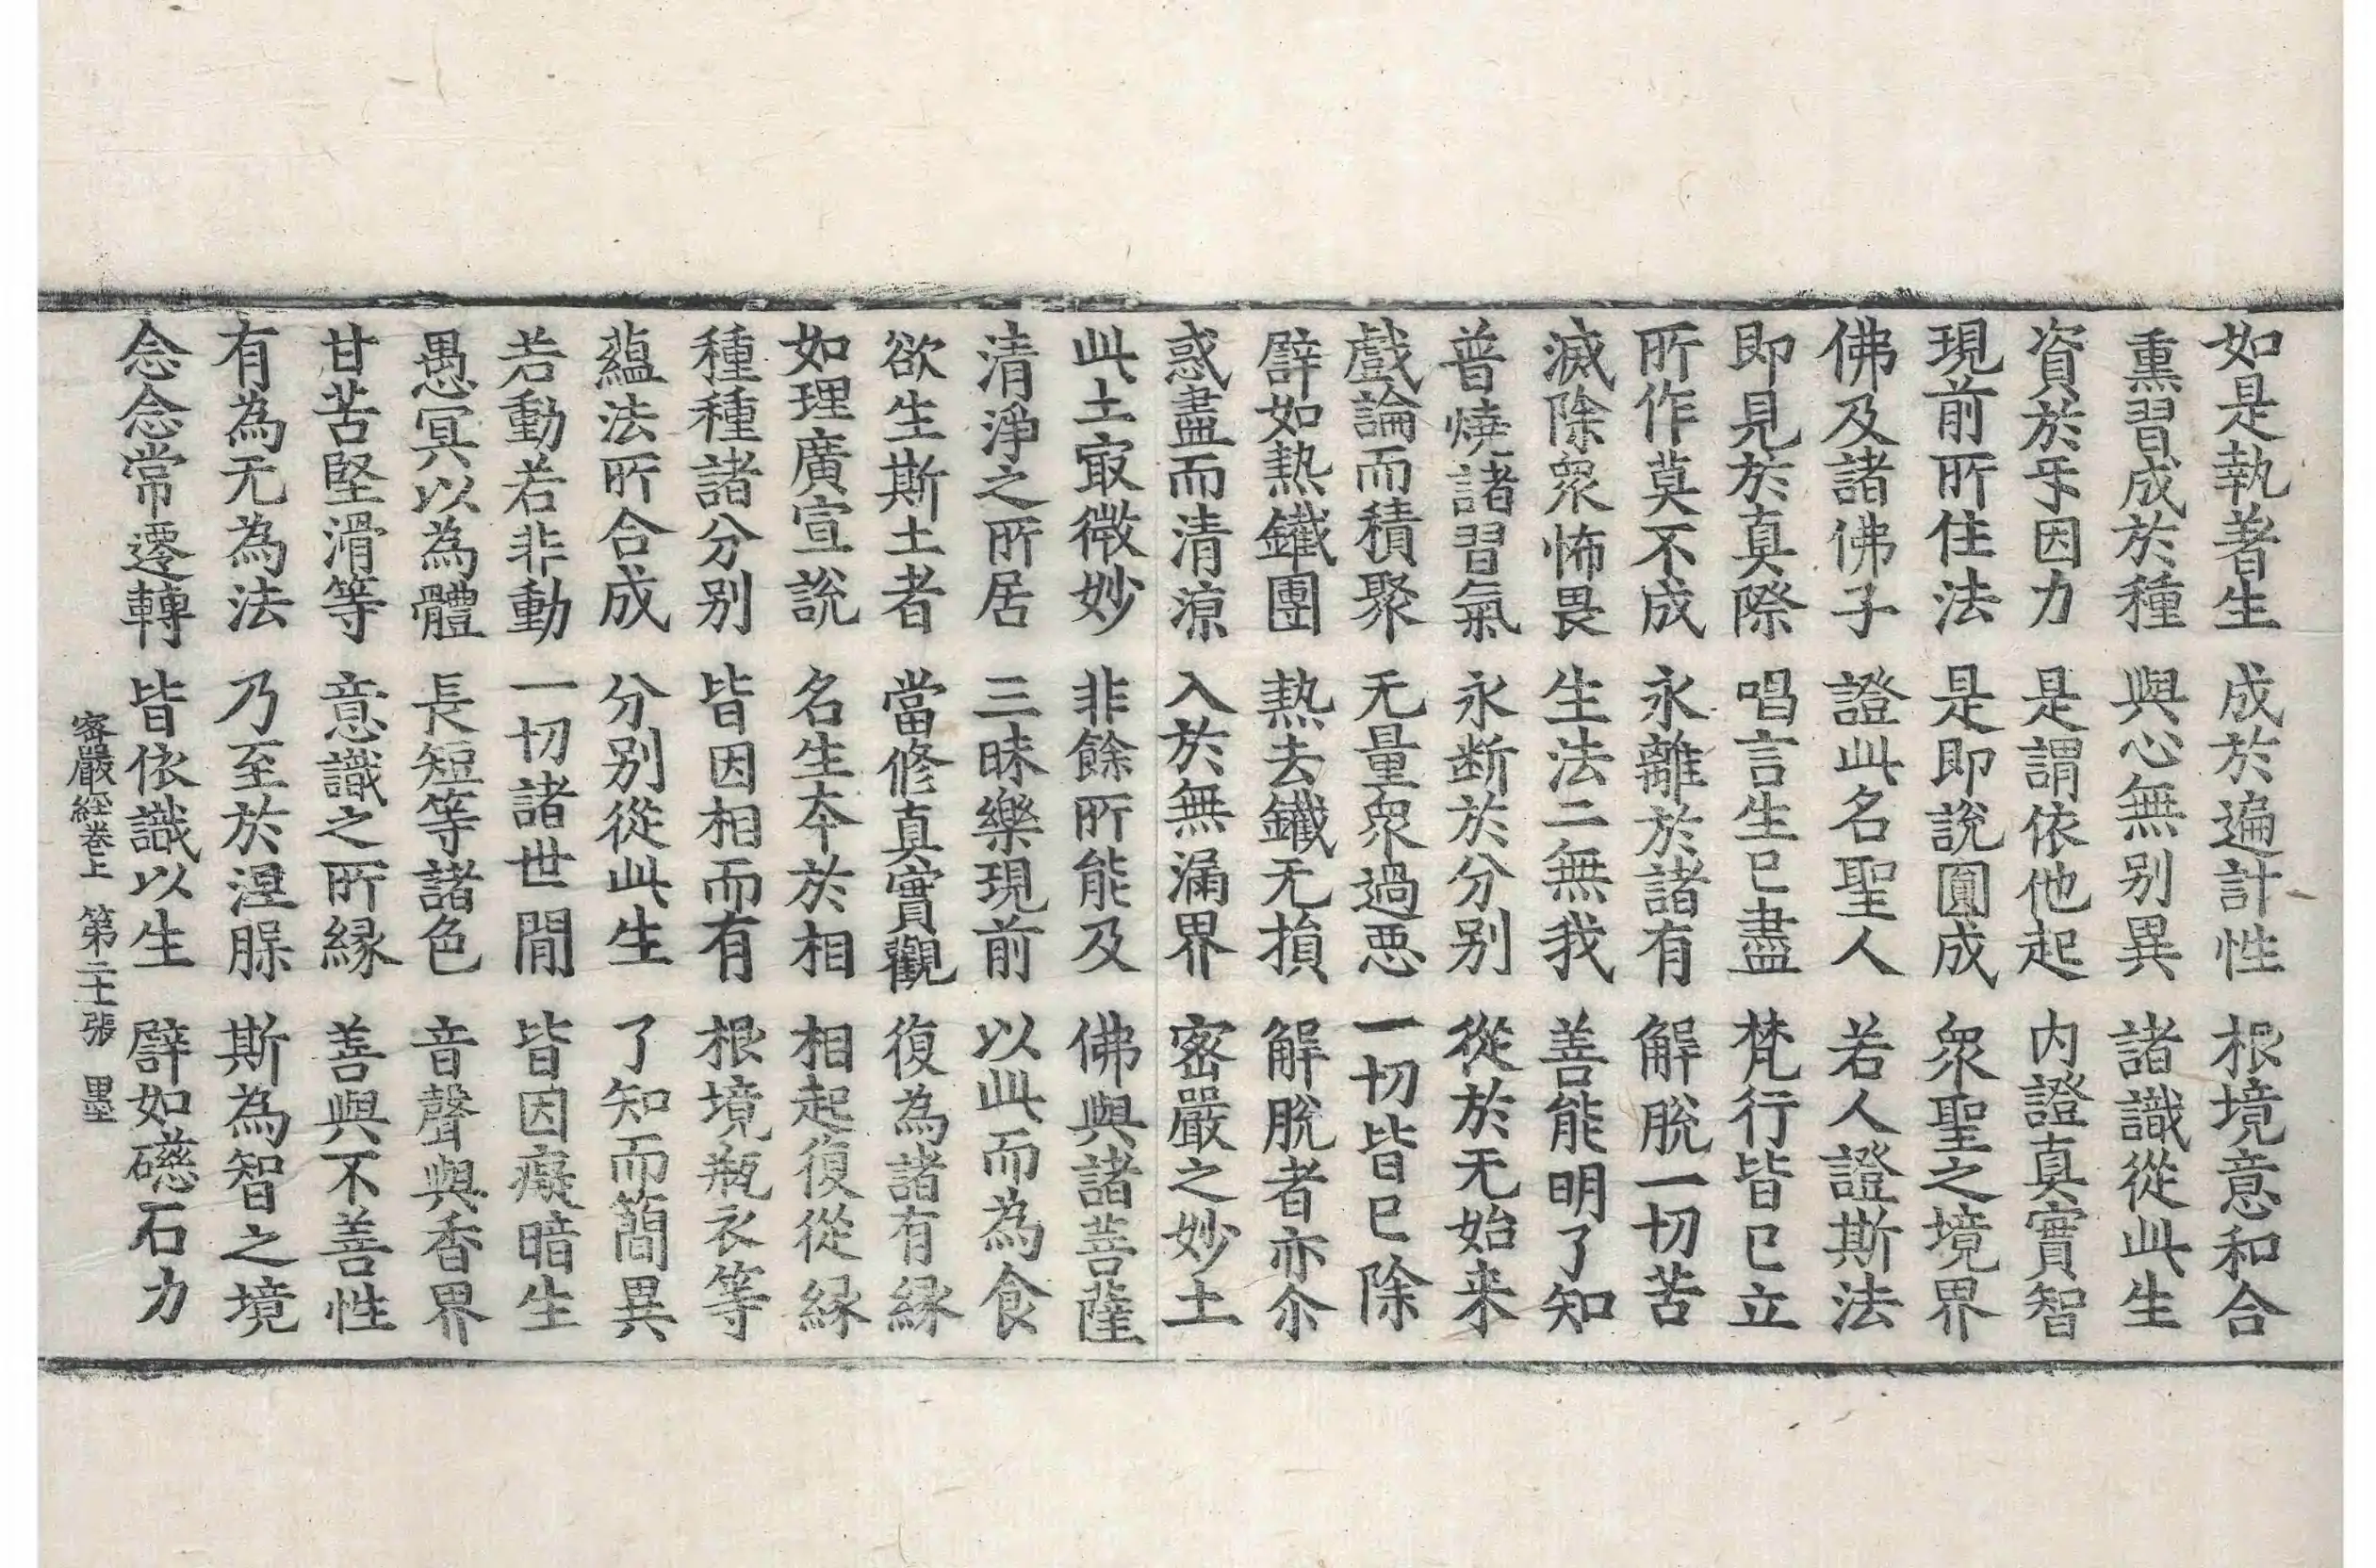 如是執著生　成於遍計性　根境意和合
熏習成於種　與心無別異　諸識從此生
資於㸦因力　是謂依他起　内證真實智
現前所住法　是即說圓成　衆聖之境界
佛及諸佛子　證此名聖人　若人證斯法
即見於真際　唱言生已盡　梵行皆已立
所作莫不成　永離於諸有　解脫一切苦
滅除衆怖畏　生法二無我　善能明了知
普燒諸習氣　永断於分別　從於无始来
戲論而積聚　无量衆過悪　一切皆已除
譬如熱鐵團　熱去鐵无損　解脫者亦尒
惑盡而清涼　入於無漏界　密嚴之妙土
此土㝡微妙　非餘所能及　佛與諸菩薩
清淨之所居　三昧樂現前　以此而為食
欲生斯土者　當修真實觀　復為諸有緣
如理廣宣說　名生夲於相　相起復從緣
種種諸分別　皆因相而有　根境瓶衣等
蘊法所合成　分別從此生　了知而簡異
若動若非動　一切諸世間　皆因癡暗生
愚冥以為體　長短等諸色　音聲與香界
甘苦堅滑等　意識之所緣　善與不善性
有為无為法　乃至於涅槃　斯為智之境
念念常遷轉　皆依識以生　譬如磁石力
密嚴經卷上　第二十張　墨